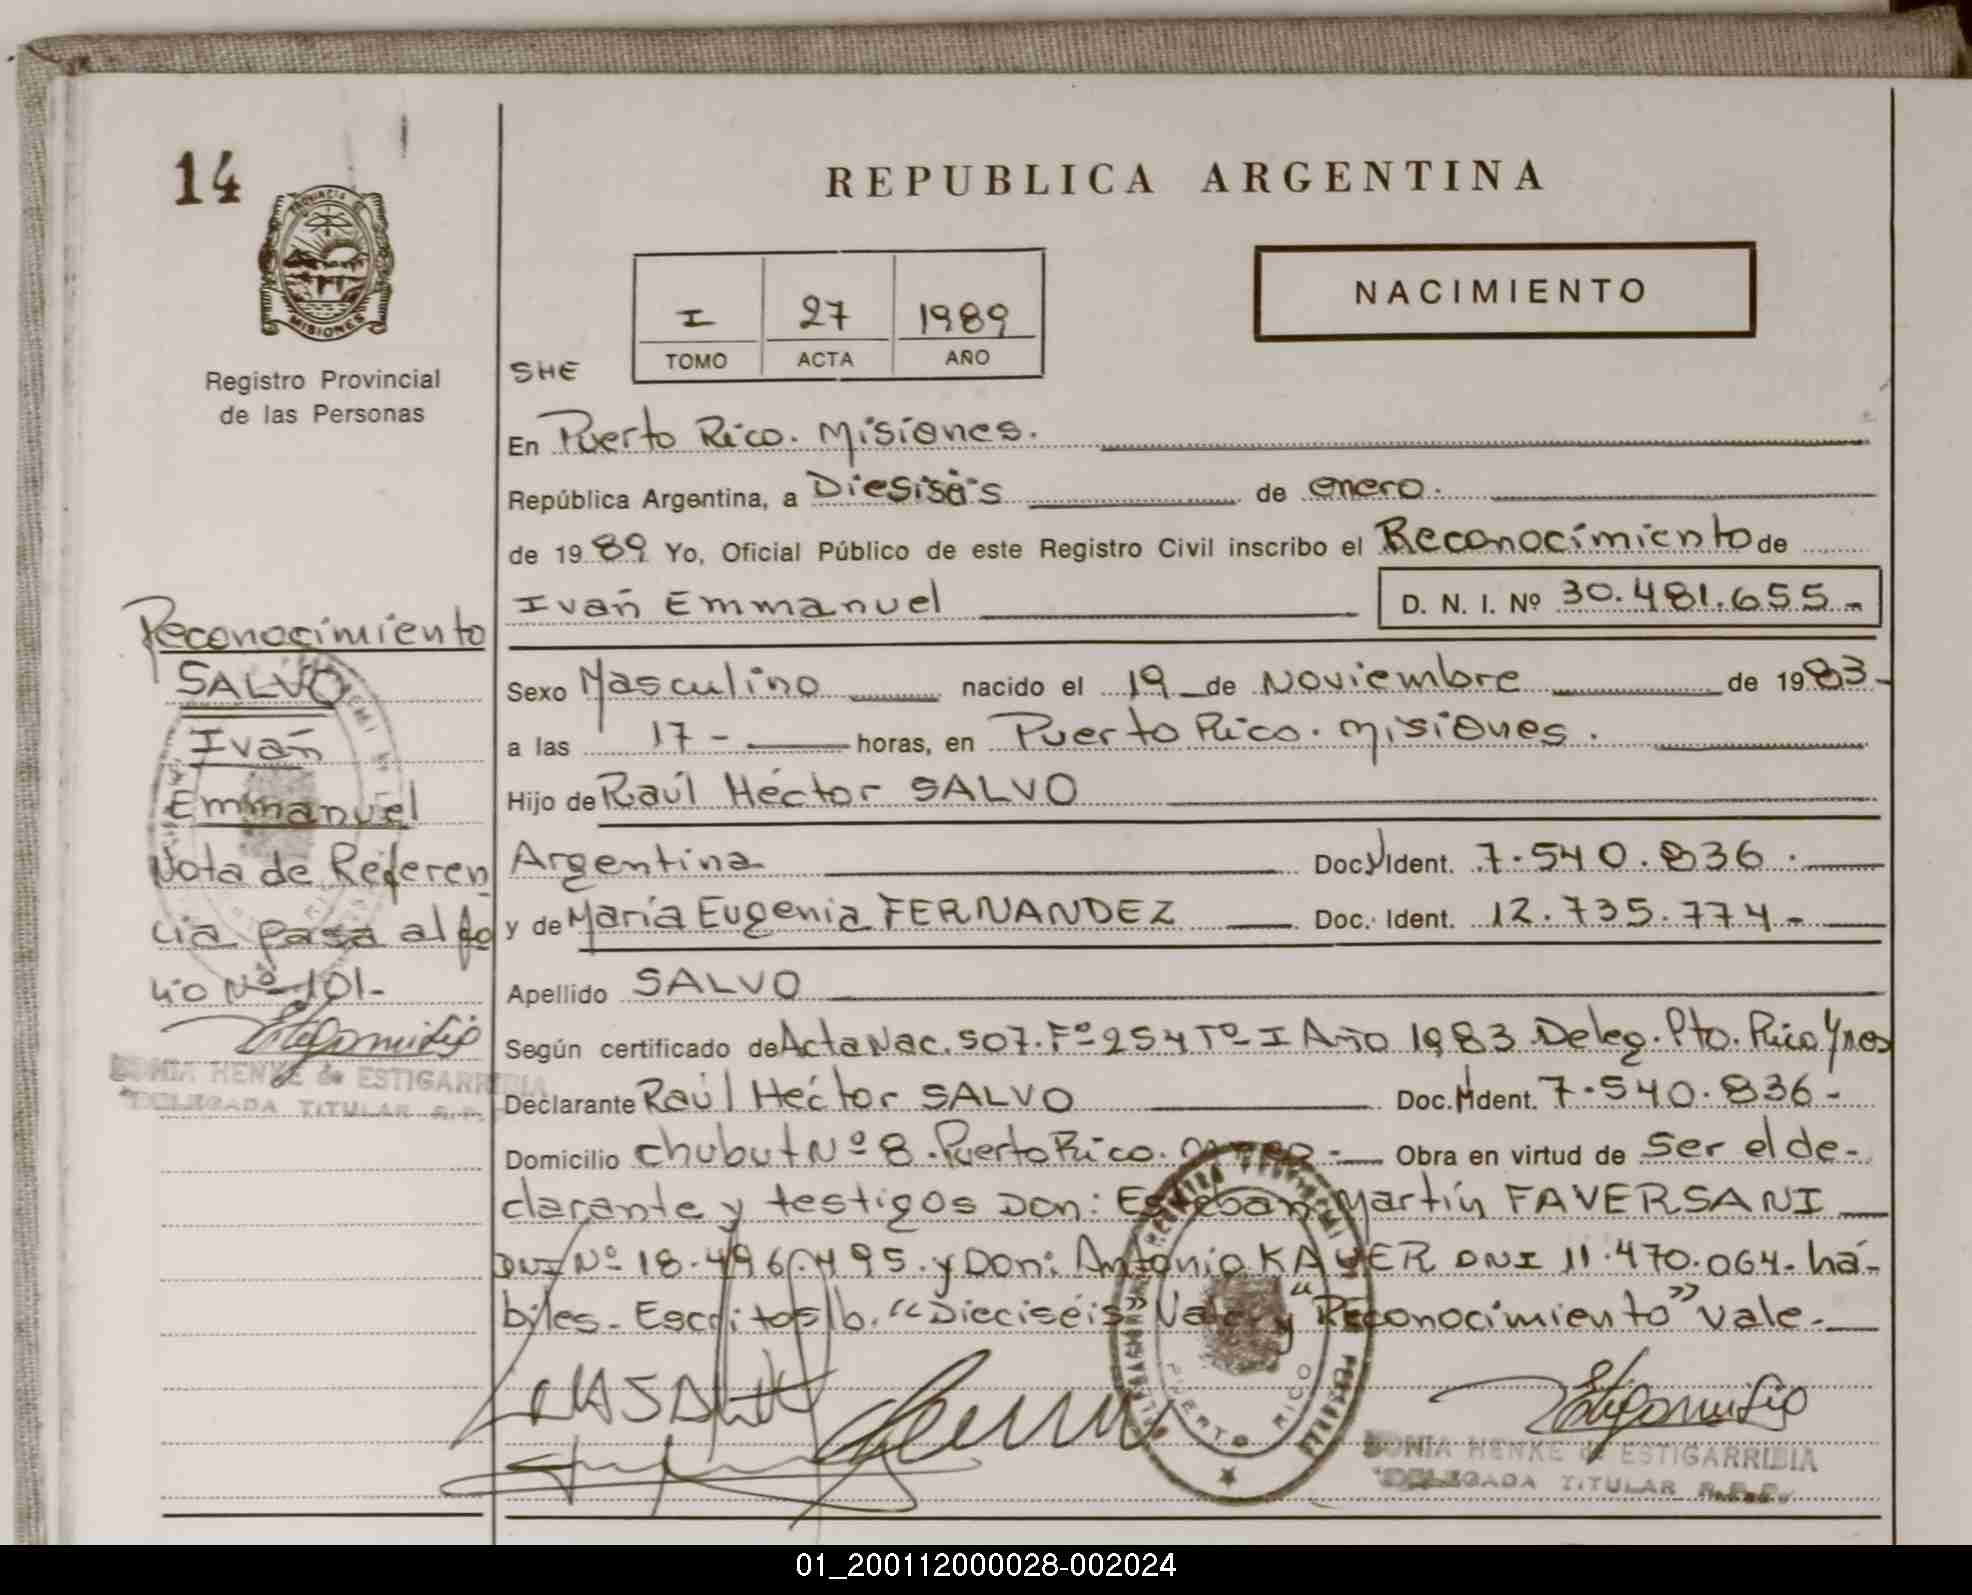 14
PROVINCIA DE
MISIONES
Registro Provincial
de las Personas
REPUBLICA ARGENTINA
I 27 1989
TOMO ACTA AÑO
NACIMIENTO
SHE
En Puerto Rico. Misiones.
República Argentina, a Diesisés de enero.
de 1989 Yo, Oficial Público de este Registro Civil inscribo el Reconocimiento de
Iván Emmanuel D. N. I. Nº 30.481.655-
Sexo Masculino nacido el 19 de Noviembre de 1983-
a las 17- horas, en Puerto Rico. Misiones.
Hijo de Raúl Héctor SALVO
Argentina Doc. Ident. 7.540.836.
y de María Eugenia FERNANDEZ Doc. Ident. 12.735.774-
Apellido SALVO
Según certificado de Acta Nac. 507. Fº 254 Tº I Año 1983. Deleg. Pto. Rico
Declarante Raúl Héctor SALVO Doc. Ident. 7.540.836-
Domicilio Chubut Nº 8. Puerto Rico. Obra en virtud de ser el de-
clarante y testigos Don: Esteban Martín FAVERSANI
DNI Nº 18.496.495. y Don: Antonio KAYER DNI 11.470.064. há-
biles. Escritos/b. "Dieciséis" Vale y "Reconocimiento" vale.
Reconocimiento
SALVO
Iván
Emmanuel
Nota de Referen
cia pasa al fo
lio Nº 101-
SONIA HENKE de ESTIGARRIBIA
DELEGADA TITULAR R.P.
PUERTO RICO
SONIA HENKE de ESTIGARRIBIA
DELEGADA TITULAR R.P.P.
01_200112000028-002024